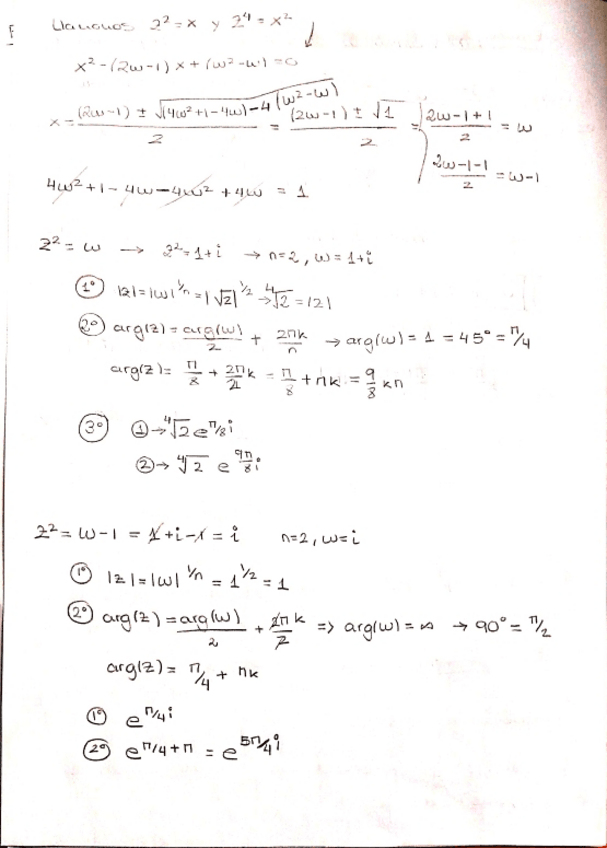 Llamamos z² = x y z⁴ = x²
x² - (2w-1)x + (w² - w) = 0
x = ((2w-1) ± √(4w²+1-4w) - 4(w²-w)) / 2 = ((2w-1) ± √1) / 2 = { (2w-1+1)/2 = w
(2w-1-1)/2 = w-1
4w² + 1 - 4w - 4w² + 4w = 1
z² = w → z² = 1+i → n=2, w = 1+i
1º |z| = |w|^(1/n) = |√2|^(1/2) → ⁴√2 = |z|
2º arg(z) = arg(w)/2 + 2πk/n → arg(w) = 1 = 45° = π/4
arg(z) = π/8 + 2πk/2 = π/8 + πk = 9/8 kπ
3º ① → ⁴√2 e^(π/8 i)
② → ⁴√2 e^(9π/8 i)
z² = w - 1 = 1 + i - 1 = i n=2, w=i
1º |z| = |w|^(1/n) = 1^(1/2) = 1
2º arg(z) = arg(w)/2 + 2πk/2 => arg(w) = ∞ → 90° = π/2
arg(z) = π/4 + πk
1º e^(π/4 i)
2º e^(π/4+π) = e^(5π/4 i)